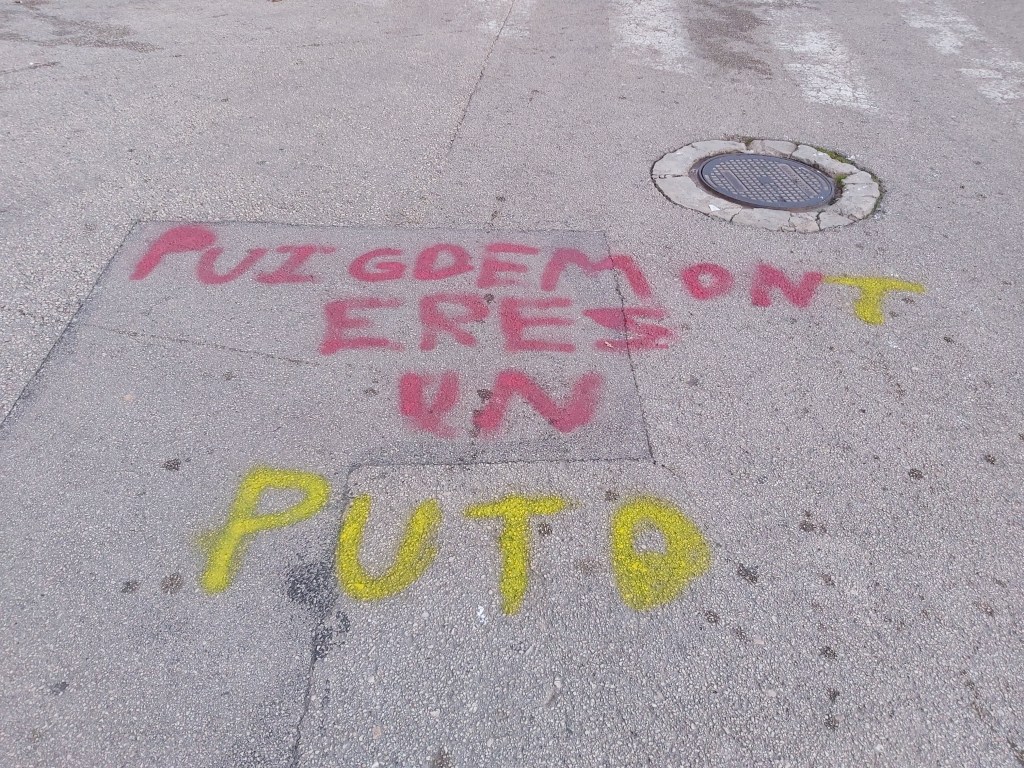 PUIGDEMONT
ERES
UN
PUTO